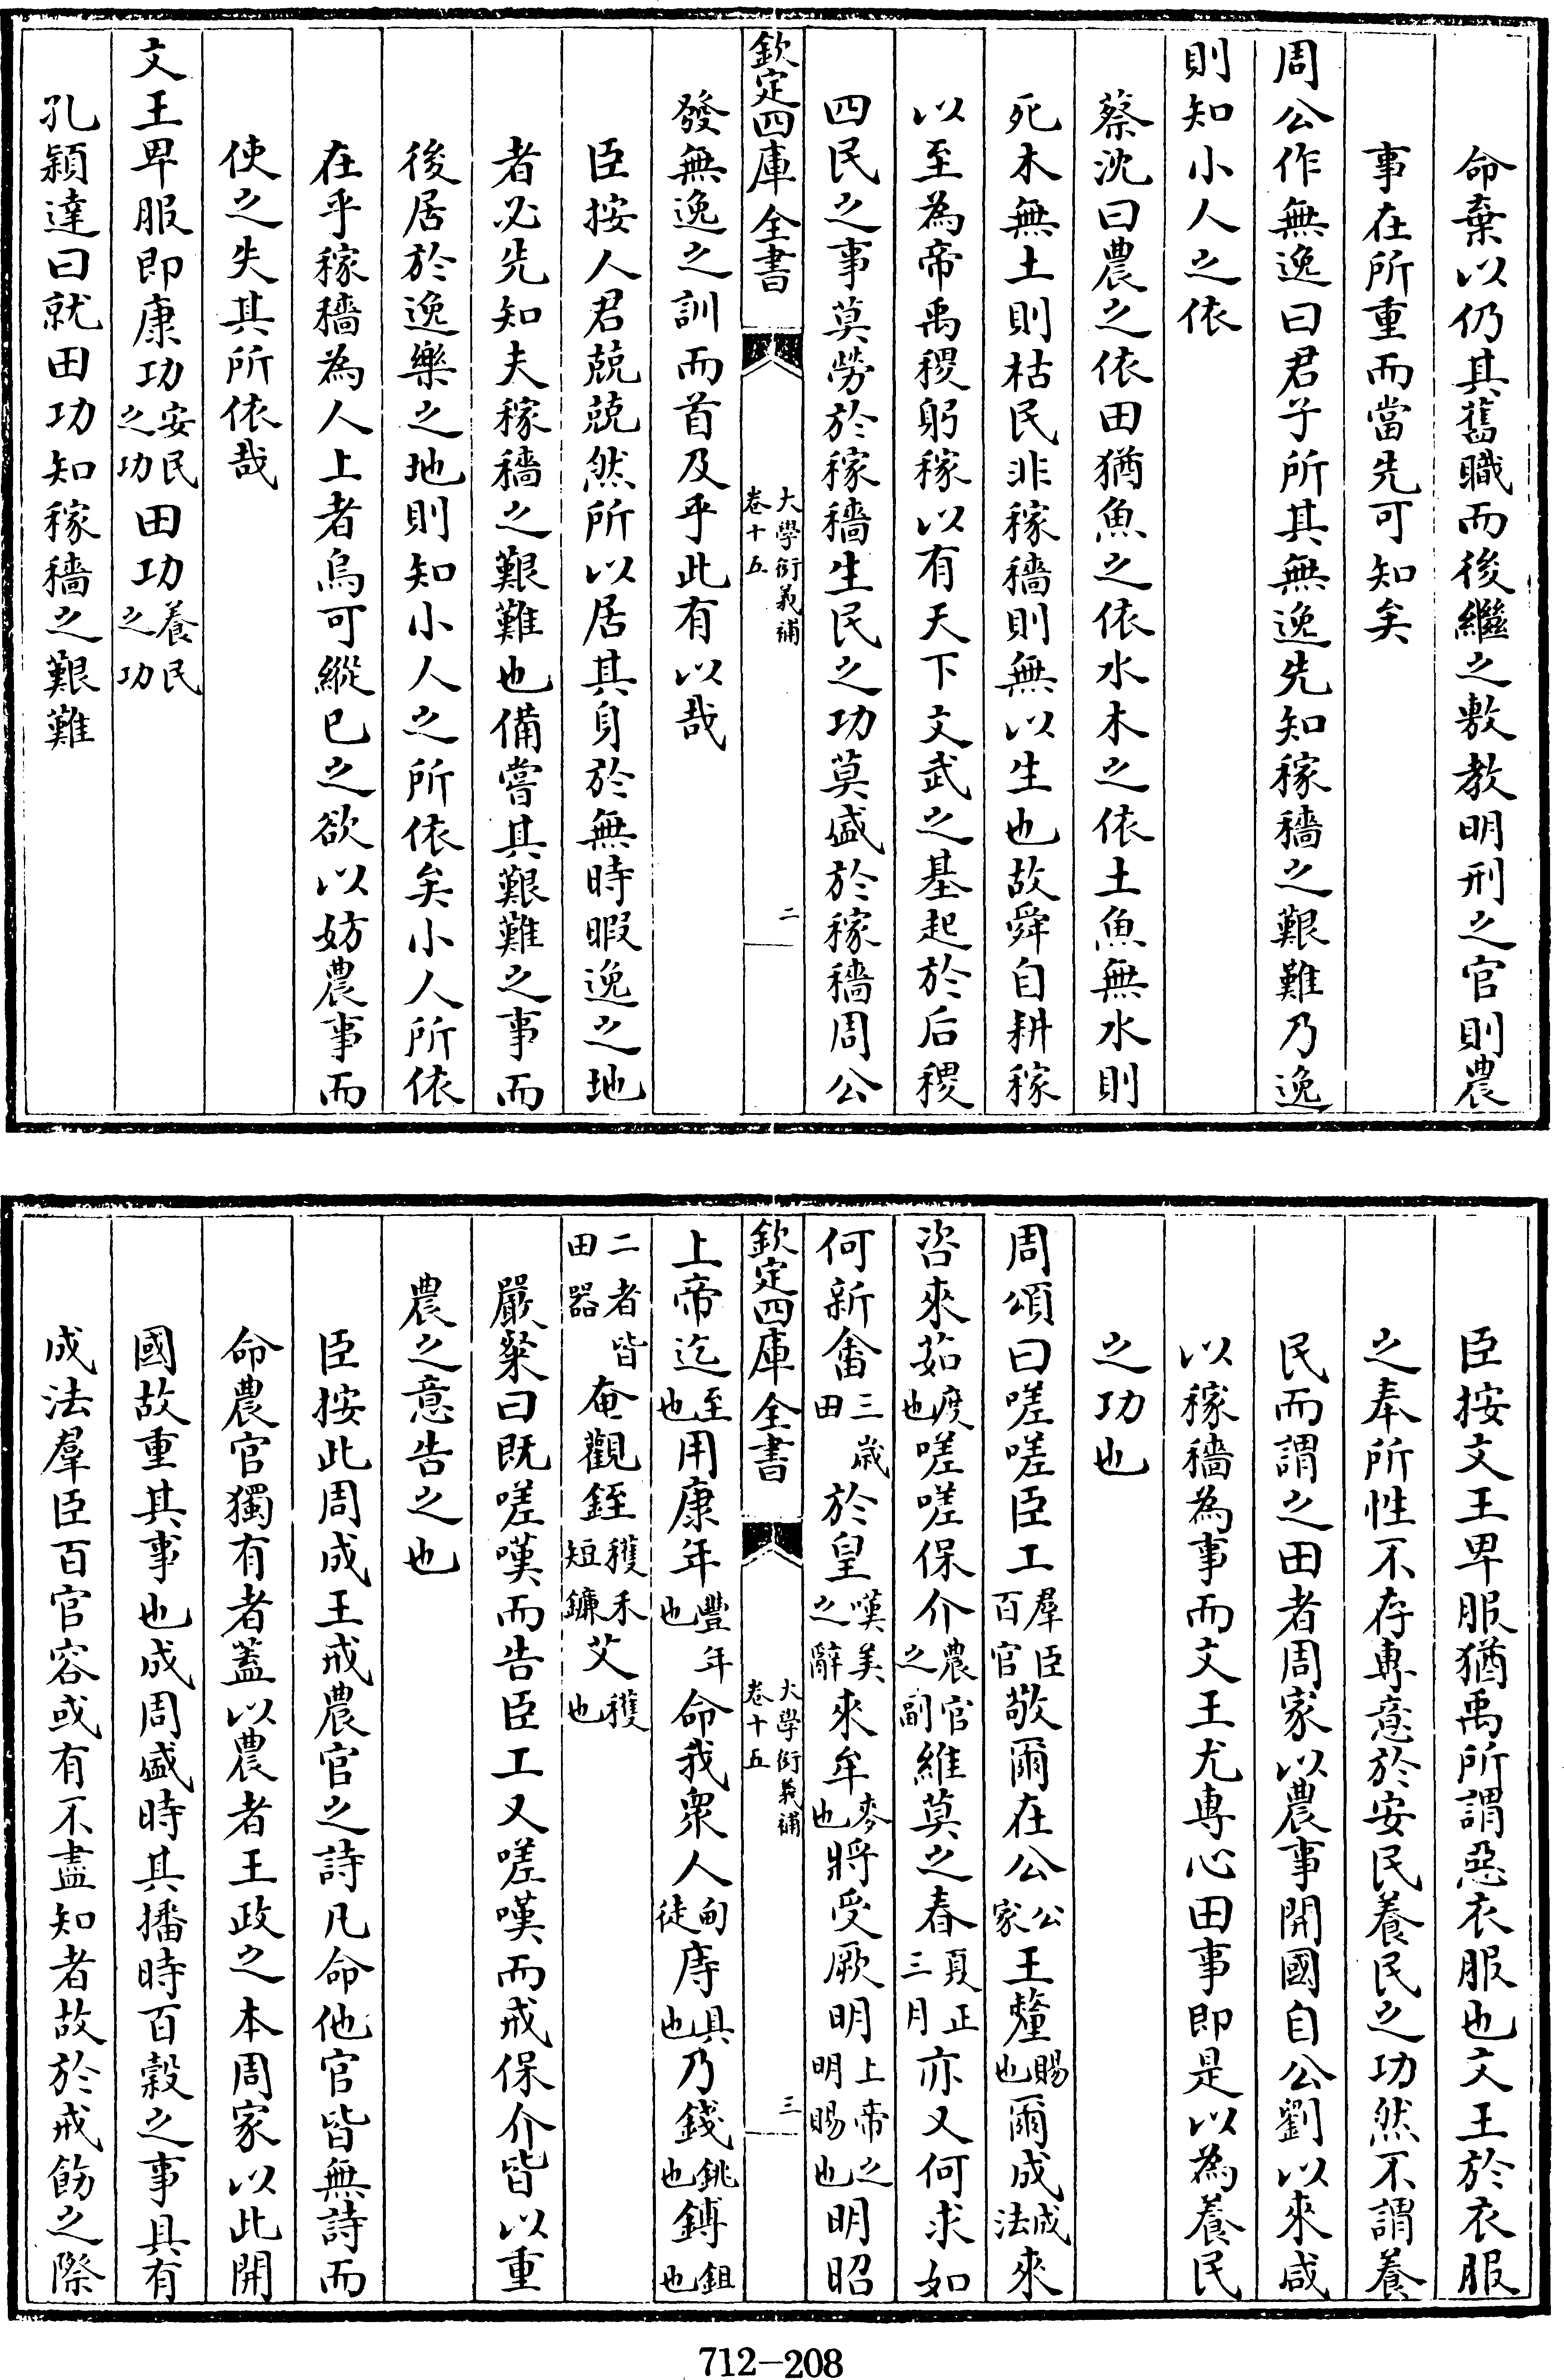 命棄以仍其舊職而後繼之敷教明刑之官則農
事在所重而當先可知矣
周公作無逸曰君子所其無逸先知稼穡之艱難乃逸
則知小人之依
蔡沈曰農之依田猶魚之依水木之依土魚無水則
死木無土則枯民非稼穡則無以生也故舜自耕稼
以至為帝禹稷躬稼以有天下文武之基起於后稷
四民之事莫勞於稼穡生民之功莫盛於稼穡周公
欽定四庫全書
大學衍義補
卷十五
二
發無逸之訓而首及乎此有以哉
臣按人君兢兢然所以居其身於無時暇逸之地
者必先知夫稼穡之艱難也備嘗其艱難之事而
後居於逸樂之地則知小人之所依矣小人所依
在乎稼穡為人上者烏可縱已之欲以妨農事而
使之失其所依哉
文王卑服即康功安民之功田功養民之功
孔穎達曰就田功知稼穡之艱難
臣按文王卑服猶禹所謂惡衣服也文王於衣服
之奉所性不存專意於安民養民之功然不謂養
民而謂之田者周家以農事開國自公劉以來咸
以稼穡為事而文王尤專心田事即是以為養民
之功也
周頌曰嗟嗟臣工羣臣百官敬爾在公公家王釐賜也爾成成法來
咨來茹度也嗟嗟保介農官之副維莫之春夏正三月亦又何求如
何新畬三歲田於皇嘆美之辭來牟麥也將受厥明上帝之明賜也明昭
欽定四庫全書
大學衍義補
卷十五
三
上帝迄至也用康年豐年也命我衆人甸徒庤具也乃錢銚也鎛鉏也
二者皆田器奄觀銍穫禾短鐮艾穫也
嚴粲曰既嗟嘆而告臣工又嗟嘆而戒保介皆以重
農之意告之也
臣按此周成王戒農官之詩凡命他官皆無詩而
命農官獨有者蓋以農者王政之本周家以此開
國故重其事也成周盛時其播時百穀之事具有
成法羣臣百官容或有不盡知者故於戒飭之際
712-208